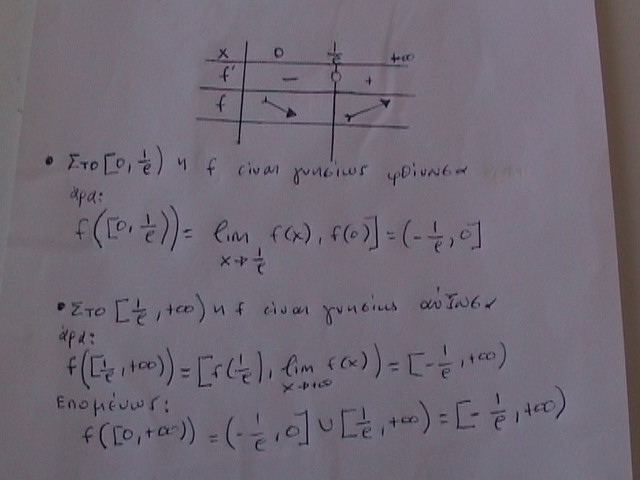 x 0 1/e +∞
f' - 0 +
f
• Στο [0, 1/e) η f είναι γνησίως φθίνουσα
άρα:
f([0, 1/e)) = lim x→1/e f(x), f(0)] = (-1/e, 0]
• Στο [1/e, +∞) η f είναι γνησίως αύξουσα
άρα:
f([1/e, +∞)) = [f(1/e), lim x→+∞ f(x)) = [-1/e, +∞)
Επομένως:
f([0, +∞)) = (-1/e, 0] ∪ [1/e, +∞) = [-1/e, +∞)